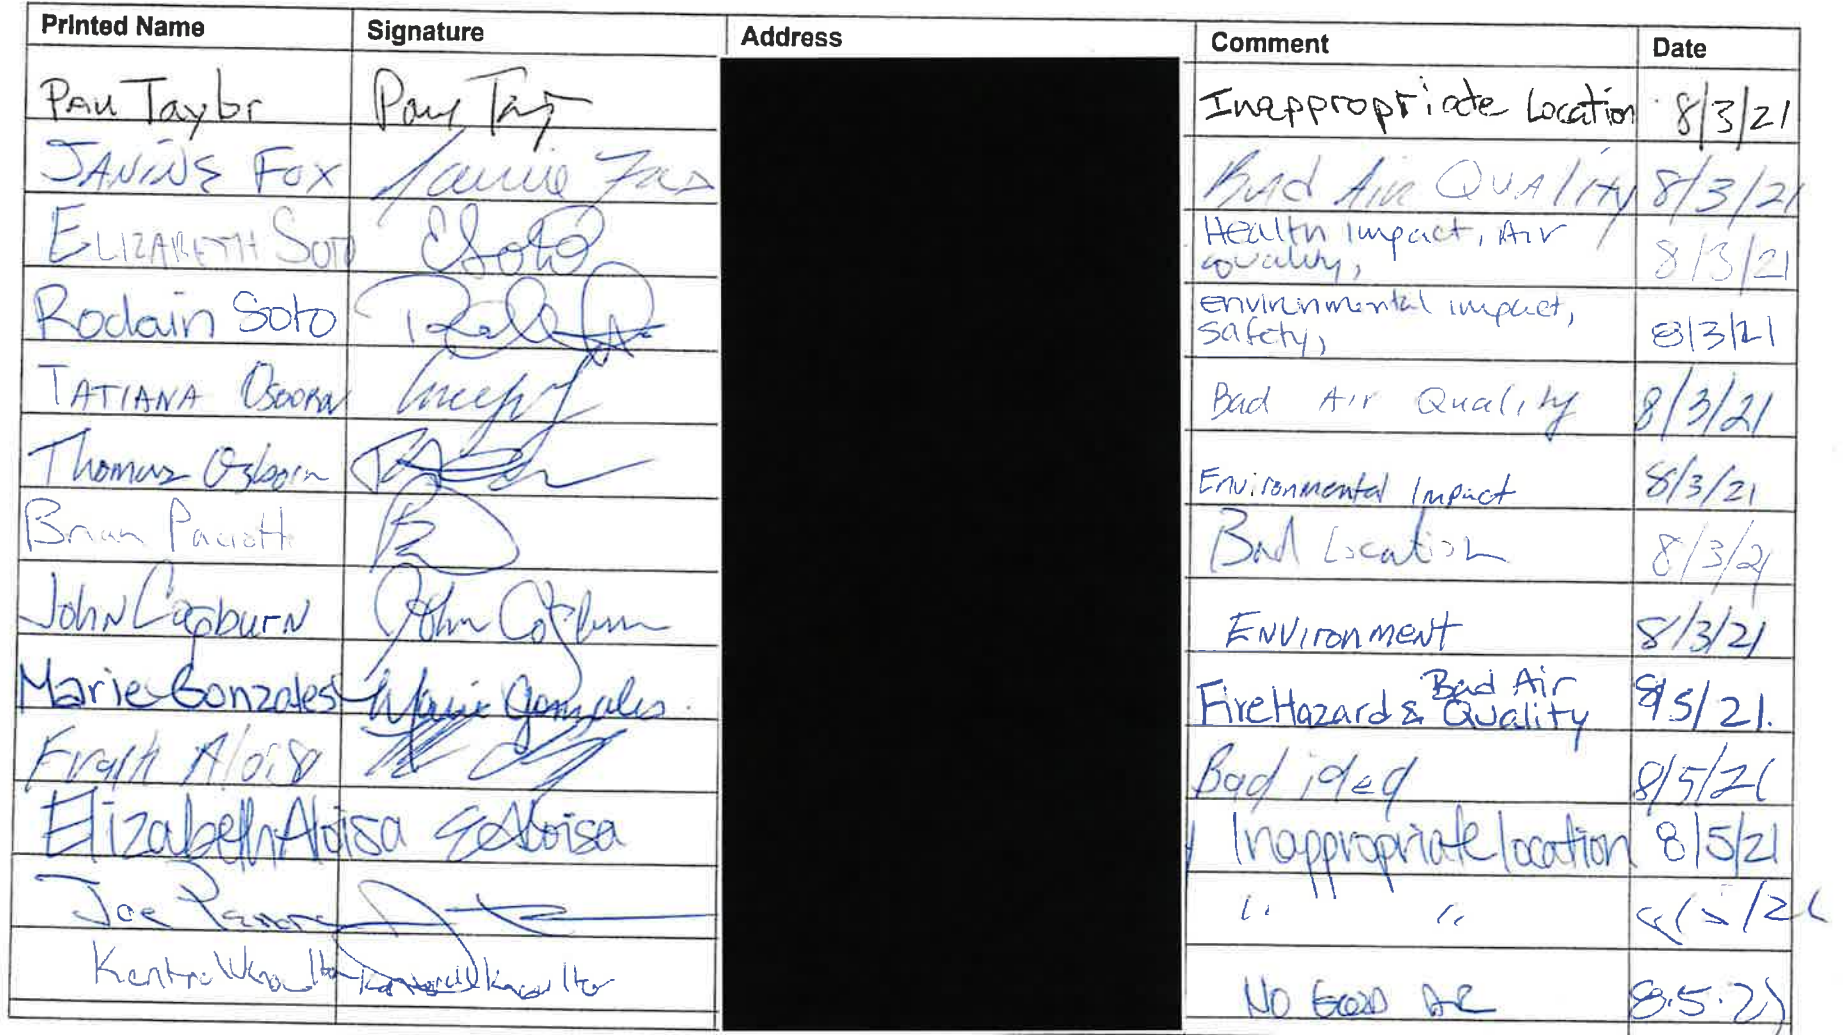 Printed Name Signature Address Comment Date
Paul Taylor Paul Tay Inappropriate Location 8/3/21
JANINE FOX Janine Fox Bad Air QUALITY 8/3/21
ELIZABETH SOTO ESoto Health impact, Air 8/3/21
quality,
Rodain Soto environmental impact, 8/3/21
safety,
TATIANA OSBORN Bad Air Quality 8/3/21
Thomas Osborn Environmental Impact 8/3/21
Brian Paciotti Bad Location 8/3/21
John Cogburn John Cogburn ENVIRONMENT 8/3/21
Marie Gonzales Marie Gonzales. Fire Hazard & Bad Air 8/5/21.
Quality
Frank Aloisa Bad idea 8/5/21
Elizabeth Aloisa E Aloisa Inappropriate location 8/5/21
Joe " " 8/5/21
Knowlton Knowlton NO GOOD 8.5.21